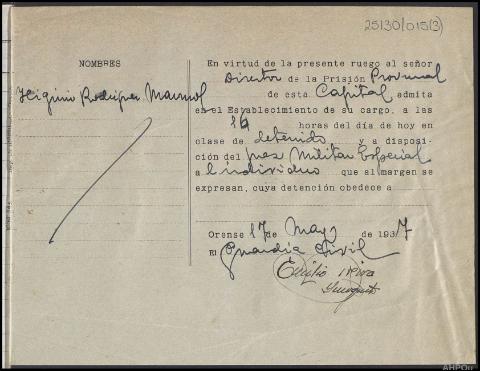 25130/015(3)
NOMBRES
Higinio Rodriguez
En virtud de la presente ruego al señor
Director de la Prisión Provincial
de esta Capital admita
en el Establecimiento de su cargo, a las
horas del día de hoy en
clase de detenido y a disposi-
ción del Juez Militar Especial
a l individuo que al margen se
expresan, cuya detención obedece a
Orense 17 de Mayo de 1937
El Guardia Civil
Emilio
AHPOu